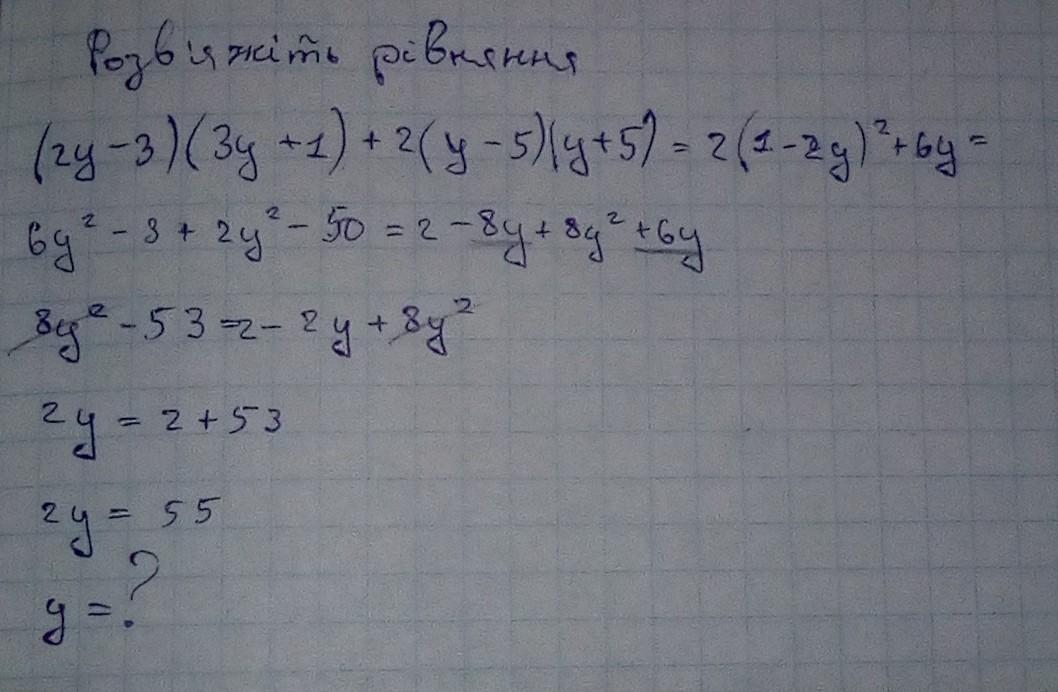 Розв'яжіть рівняння
(2y-3)(3y+1)+2(y-5)(y+5)=2(1-2y)²+6y=
6y²-3+2y²-50=2-8y+8y²+6y
8y²-53=2-2y+8y²
2y=2+53
2y=55
y=?